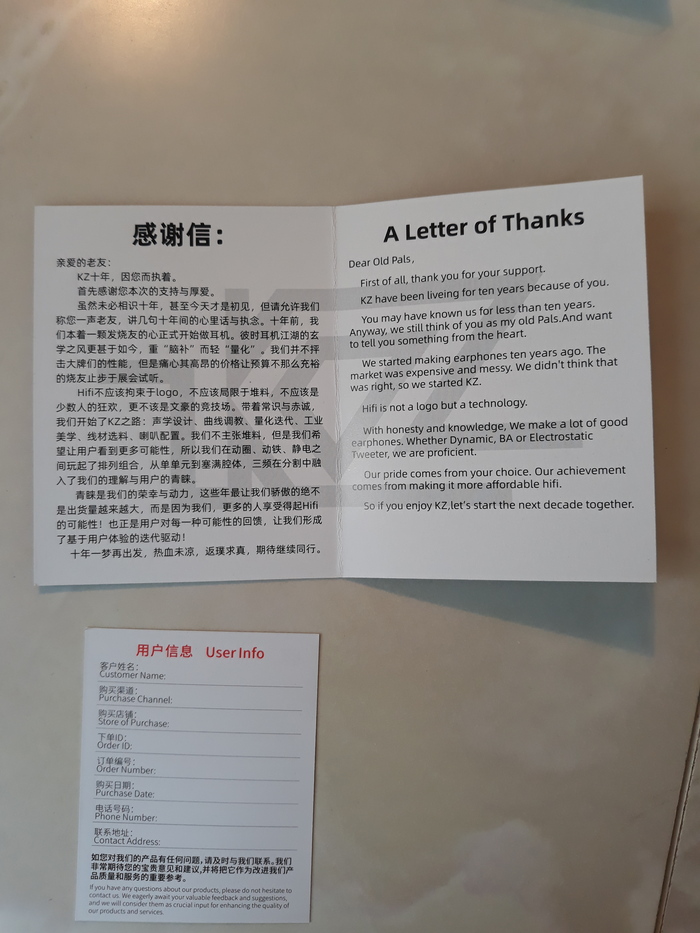 感谢信：
亲爱的老友：
KZ十年，因您而执着。
首先感谢您本次的支持与厚爱。
虽然未必相识十年，甚至今天才是初见，但请允许我们
称您一声老友，讲几句十年间的心里话与执念。十年前，我
们本着一颗发烧友的心正式开始做耳机。彼时耳机江湖的玄
学之风更甚于如今，重“脑补”而轻“量化”。我们并不抨
击大牌们的性能，但是痛心其高昂的价格让预算不那么充裕
的烧友止步于展会试听。
Hifi不应该拘束于logo，不应该局限于堆料，不应该是
少数人的狂欢，更不该是文豪的竞技场。带着常识与赤诚，
我们开始了KZ之路：声学设计、曲线调教、量化迭代、工业
美学、线材选料、喇叭配置。我们不主张堆料，但是我们希
望让用户看到更多可能性，所以我们在动圈、动铁、静电之
间玩起了排列组合，从单单元到塞满腔体，三频在分割中融
入了我们的理解与用户的青睐。
青睐是我们的荣幸与动力，这些年最让我们骄傲的绝不
是出货量越来越大，而是因为我们，更多的人享受得起Hifi
的可能性！也正是用户对每一种可能性的回馈，让我们形成
了基于用户体验的迭代驱动！
十年一梦再出发，热血未凉，返璞求真，期待继续同行。
KZ
A Letter of Thanks
Dear Old Pals,
First of all, thank you for your support.
KZ have been liveing for ten years because of you.
You may have known us for less than ten years.
Anyway, we still think of you as my old Pals.And want
to tell you something from the heart.
We started making earphones ten years ago. The
market was expensive and messy. We didn't think that
was right, so we started KZ.
Hifi is not a logo but a technology.
With honesty and knowledge, We make a lot of good
earphones. Whether Dynamic, BA or Electrostatic
Tweeter, we are proficient.
Our pride comes from your choice. Our achievement
comes from making it more affordable hifi.
So if you enjoy KZ,let's start the next decade together.
用户信息 User Info
客户姓名：
Customer Name:
购买渠道：
Purchase Channel:
购买店铺：
Store of Purchase:
下单ID：
Order ID:
订单编号：
Order Number:
购买日期：
Purchase Date:
电话号码：
Phone Number:
联系地址：
Contact Address:
如您对我们的产品有任何问题，请及时与我们联系。我们
非常期待您的宝贵意见和建议，并将把它作为改进我们产
品质量和服务的重要参考。
If you have any questions about our products, please do not hesitate to
contact us. We eagerly await your valuable feedback and suggestions,
and we will consider them as crucial input for enhancing the quality of
our products and services.